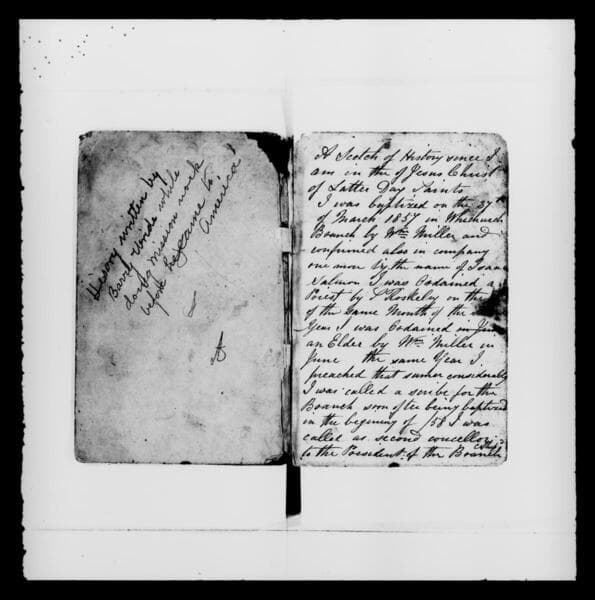 History written by
Barry Wride while
doing mission work
before he came to
America
A Scetch of History since I
am in the of Jesus Christ
of Latter Day Saints
I was baptized on the 27th
of March 1857 in Whitchurch
Branch by Wm Miller and
confirmed also in company
one more by the name of Isaac
Salmon I was Ordained a
Priest by S Roskeley on the
of the Same Month of the
Year I was Ordained in June
an Elder by Wm Miller in
June the same Year I
preached that sumer considerably
I was called a scribe for the
Branch soon after being baptized
in the begining of /58 I was
called as second councellor
to the President of the Branch